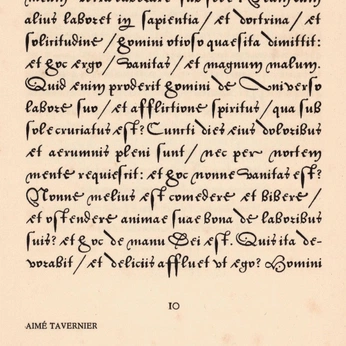 alius laboret in sapientia / et doctrina / et
solicitudine / homini otioso quaesita dimittit:
et hoc ergo / vanitas / et magnum malum.
Quid enim proderit homini de Universo
labore suo / et afflictione spiritus / qua sub
sole cruciatus est? Cuncti dies eius doloribus
et aerumnis pleni sunt / nec per noctem
mente requiescit: et hoc nonne vanitas est?
Nonne melius est comedere et bibere /
et ostendere animae suae bona de laboribus
suis? et hoc de manu Dei est. Quis ita de-
vorabit / et deliciis affluet vt ego? Homini
10
AIMÉ TAVERNIER